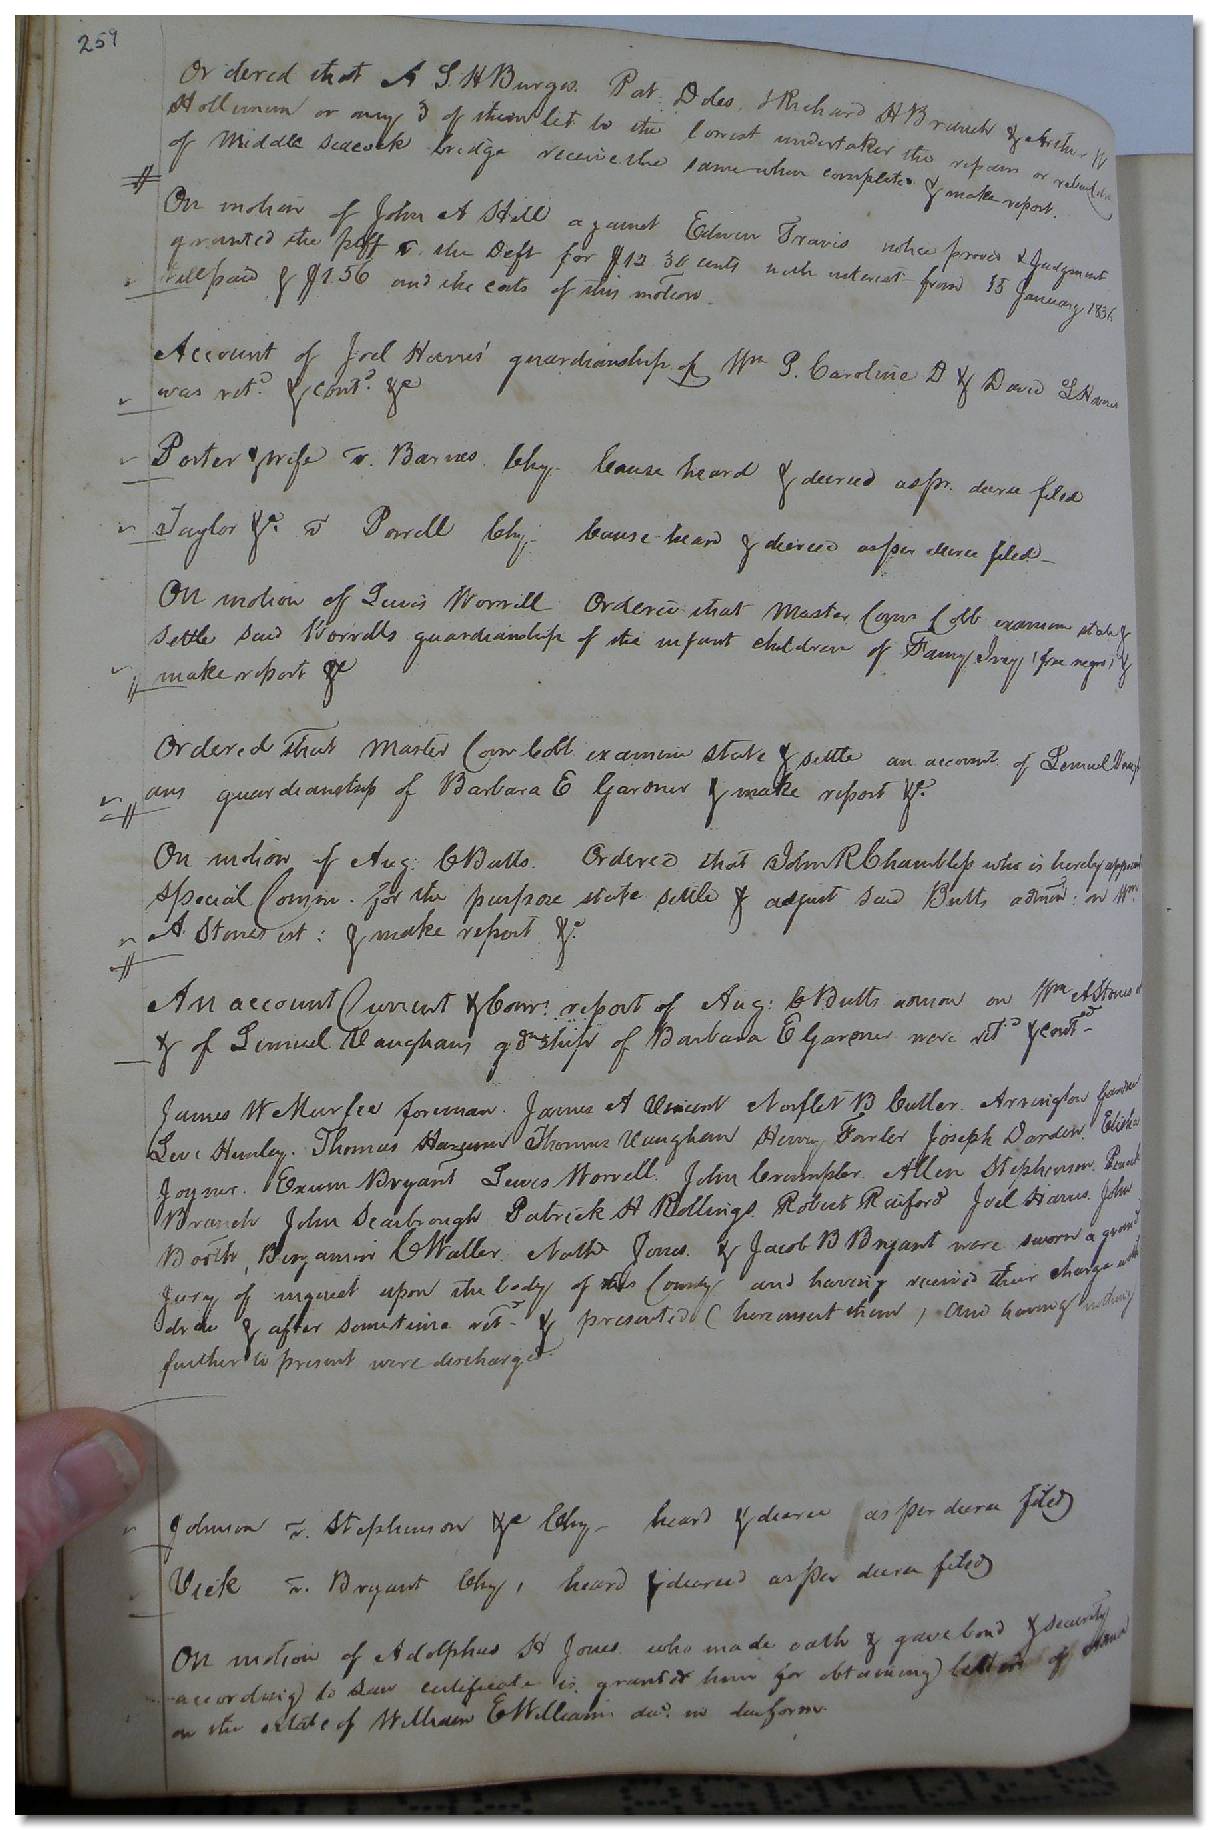 259
Ordered that A S. H Burges. Pat. Doles. & Richard H Branch & Arthur W
Holleman or any 3 of them let to the lowest undertaker the repairs or rebuilding
of Middle Seacock bridge receive the same when complete & make report.
On motion of John A Hill against Edwin Travis notice proved & Judgment
granted the plff v. the Deft for $12 30 cents with interest from 15 January 1836
till paid & $1.56 and the costs of this motion.
Account of Joel Harris' guardianship of Wm P. Caroline D & David S Harris
was retd. & contd. &c
Porter & wife v. Barnes. Chy. Cause heard & decreed as pr. decree filed
Taylor &c. v Powell Chy. Cause heard & decreed as per decree filed
On motion of Lewis Worrill Ordered that Master Comr Cobb examine state &
settle said Worrells guardianship of the infant children of Fanny Ivey (free negro) &
make report &c
Ordered that Master Comr Cobb examine state & settle an account of Lemuel Vaugh
ans guardianship of Barbara E Gardner & make report &c.
On motion of Aug: C Butts. Ordered that John R Chambliss who is hereby appointed
special Comm. for the purpose state settle & adjust said Butts admon: on Wm.
A Stones est: & make report &c.
An account Current & Comr: report of Aug: C Butts admon on Wm A Stones
& of Lemuel Vaughans gdnship of Barbara E Gardner were retd & contd
James W Murfee foreman. James A Vincent Norflet B Cutler. Arrington Gardner
Levi Hunley. Thomas Thomas Vaughan Henry Fowler Joseph Darden. Elisha
Joyner. Exum Bryant Lewis Worrell. John Crumpler. Allen Stephenson.
Branch John Scarbrough Patrick H Rollings. Robert Raiford Joel Harris. John
Booth, Benjamin C Waller. Jones. & Jacob B Bryant were sworn a grand
jury of inquest upon the body of this County and having received their charge with
drew & after sometime retd & presented (here insert them) and having nothing
further to present were discharged.
Johnson v. Stephenson &c Chy heard & decree as per decree filed
Vick v. Bryant Chy, heard & decreed as per decree filed
On motion of Adolphus H Jones who made oath & gave bond & security
according to law certificate is granted him for obtaining letters of admn
on the estate of William E William decd. in due form.